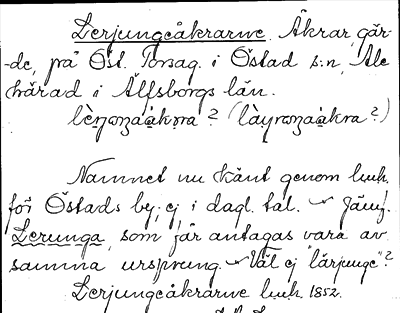 Lerjungeåkrarne. Åkrar, går-
de, på Öst. Porsag. i Östad s:n, Ale
härad i Älfsborgs län.
Namnet nu känt genom l.u.h.
för Östads by; ej i dagl. tal. Jämf.
Lerunga, som får antagas vara av
samma ursprung. Väl ej "lärjunge"?
Lerjungeåkrarne l.u.h. 1852.